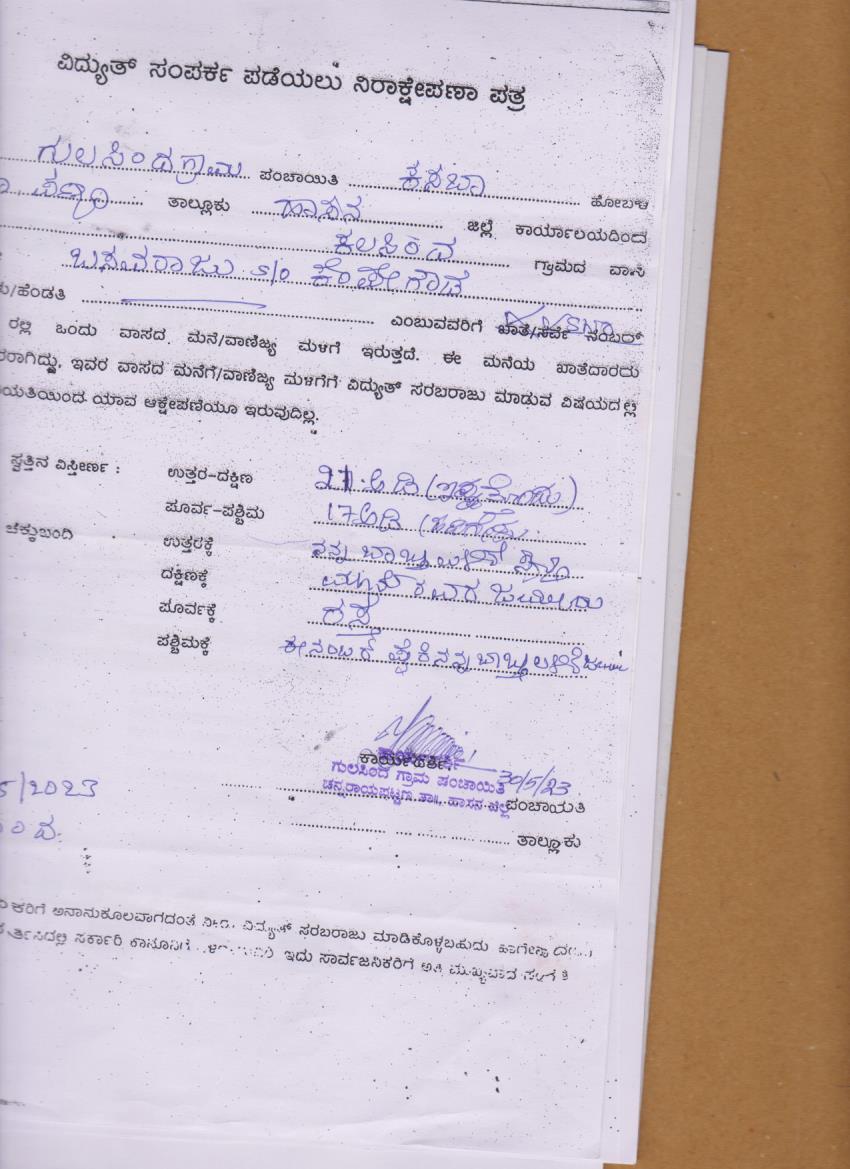 ವಿದ್ಯುತ್ ಸಂಪರ್ಕ ಪಡೆಯಲು ನಿರಾಕ್ಷೇಪಣಾ ಪತ್ರ
ಗುಲಸಿಂದ ಗ್ರಾಮ ಪಂಚಾಯಿತಿ ಕಸಬಾ ಹೋಬಳಿ
ತಾಲ್ಲೂಕು ಹಾಸನ ಜಿಲ್ಲೆ ಕಾರ್ಯಾಲಯದಿಂದ
ಕಲಸಿಂದ ಗ್ರಾಮದ ವಾಸಿ
ಬಸವರಾಜು S/o ಕೆಂಪೇಗೌಡ
/ಹೆಂಡತಿ ಎಂಬುವವರಿಗೆ ಖಾತೆ/ಸರ್ವೆ ನಂಬರ್
ರಲ್ಲಿ ಒಂದು ವಾಸದ ಮನೆ/ವಾಣಿಜ್ಯ ಮಳಿಗೆ ಇರುತ್ತದೆ. ಈ ಮನೆಯ ಖಾತೆದಾರರು
ರಾಗಿದ್ದು, ಇವರ ವಾಸದ ಮನೆಗೆ/ವಾಣಿಜ್ಯ ಮಳಿಗೆಗೆ ವಿದ್ಯುತ್ ಸರಬರಾಜು ಮಾಡುವ ವಿಷಯದಲ್ಲಿ
ಯತಿಯಿಂದ ಯಾವ ಆಕ್ಷೇಪಣೆಯೂ ಇರುವುದಿಲ್ಲ.
ಸ್ವತ್ತಿನ ವಿಸ್ತೀರ್ಣ : ಉತ್ತರ-ದಕ್ಷಿಣ 21 ಅಡಿ (ಇಪ್ಪತ್ತೊಂದು)
ಪೂರ್ವ-ಪಶ್ಚಿಮ 17 ಅಡಿ (ಹದಿನೇಳು
ಚೆಕ್ಕುಬಂದಿ ಉತ್ತರಕ್ಕೆ ನನ್ನ ಬಾಬ್ತು
ದಕ್ಷಿಣಕ್ಕೆ ರವರ ಜಮೀನು
ಪೂರ್ವಕ್ಕೆ ರಸ್ತೆ
ಪಶ್ಚಿಮಕ್ಕೆ ಈ ನಂಬರ್ ಪೈಕಿ ನನ್ನ ಬಾಬ್ತು
ಕಾರ್ಯದರ್ಶಿ 30/5/23
ಗುಲಸಿಂದ ಗ್ರಾಮ ಪಂಚಾಯಿತಿ
ಚನ್ನರಾಯಪಟ್ಟಣ ತಾ||, ಹಾಸನ ಜಿಲ್ಲೆ
ಪಂಚಾಯತಿ
5/2023
ತಾಲ್ಲೂಕು
ಕರಿಗೆ ಅನಾನುಕೂಲವಾಗದಂತೆ ವಿದ್ಯುತ್ ಸರಬರಾಜು ಮಾಡಿಕೊಳ್ಳಬಹುದು
ಸರ್ಕಾರಿ ಇದು ಸಾರ್ವಜನಿಕರಿಗೆ ಅತಿ ಮುಖ್ಯವಾದ